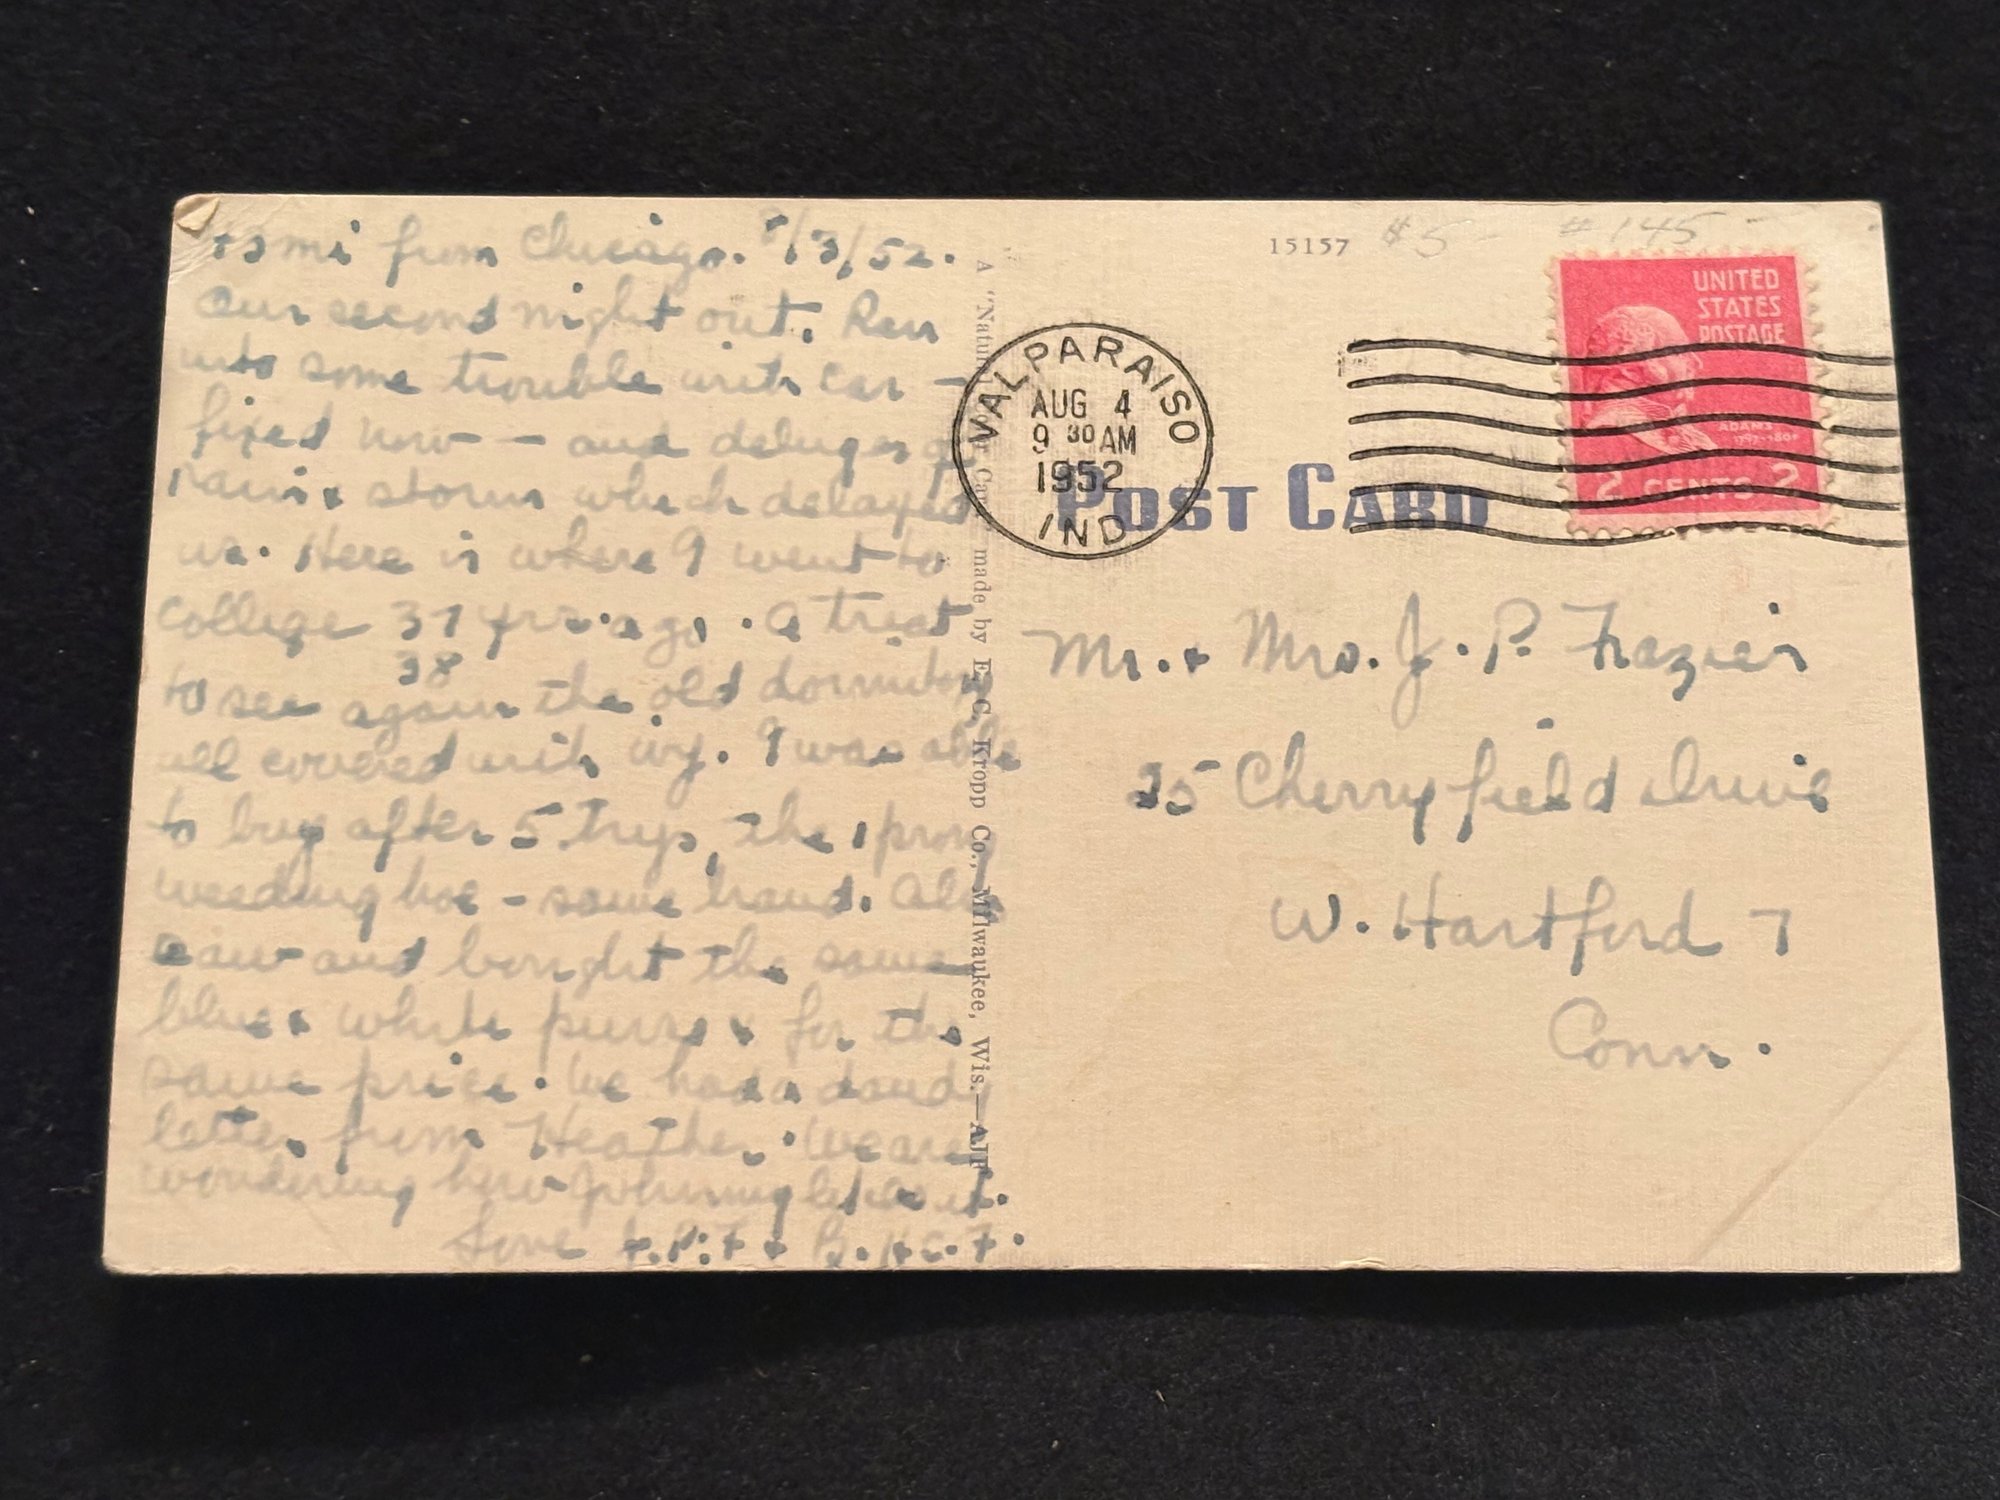 mi from Chicago. 8/3/52.
Our second night out. Ran
into some trouble with car -
fixed now - and deluges of
rain & storm which delayed
us. Here is where I went to
college 37 yrs. ago. A treat
38
to see again the old dormitory
all covered with ivy. I was able
to buy after 5 trys, the 1 prong
weeding hoe - same brand. Also
saw and bought the same
blue & white purse & for the
same price. We had a dandy
letter from Heather. We are
wondering how Johnny likes it.
Love J.P.F. & B.McC.F.
A "Natural Color Card" made by E. C. Kropp Co., Milwaukee, Wis.—AJF
15157
$5- #145-
UNITED
STATES
POSTAGE
ADAMS
1797-1801
2 CENTS 2
VALPARAISO
AUG 4
9 30 AM
1952
IND
POST CARD
Mr. & Mrs. J. P. Frazier
25 Cherryfield Drive
W. Hartford 7
Conn.